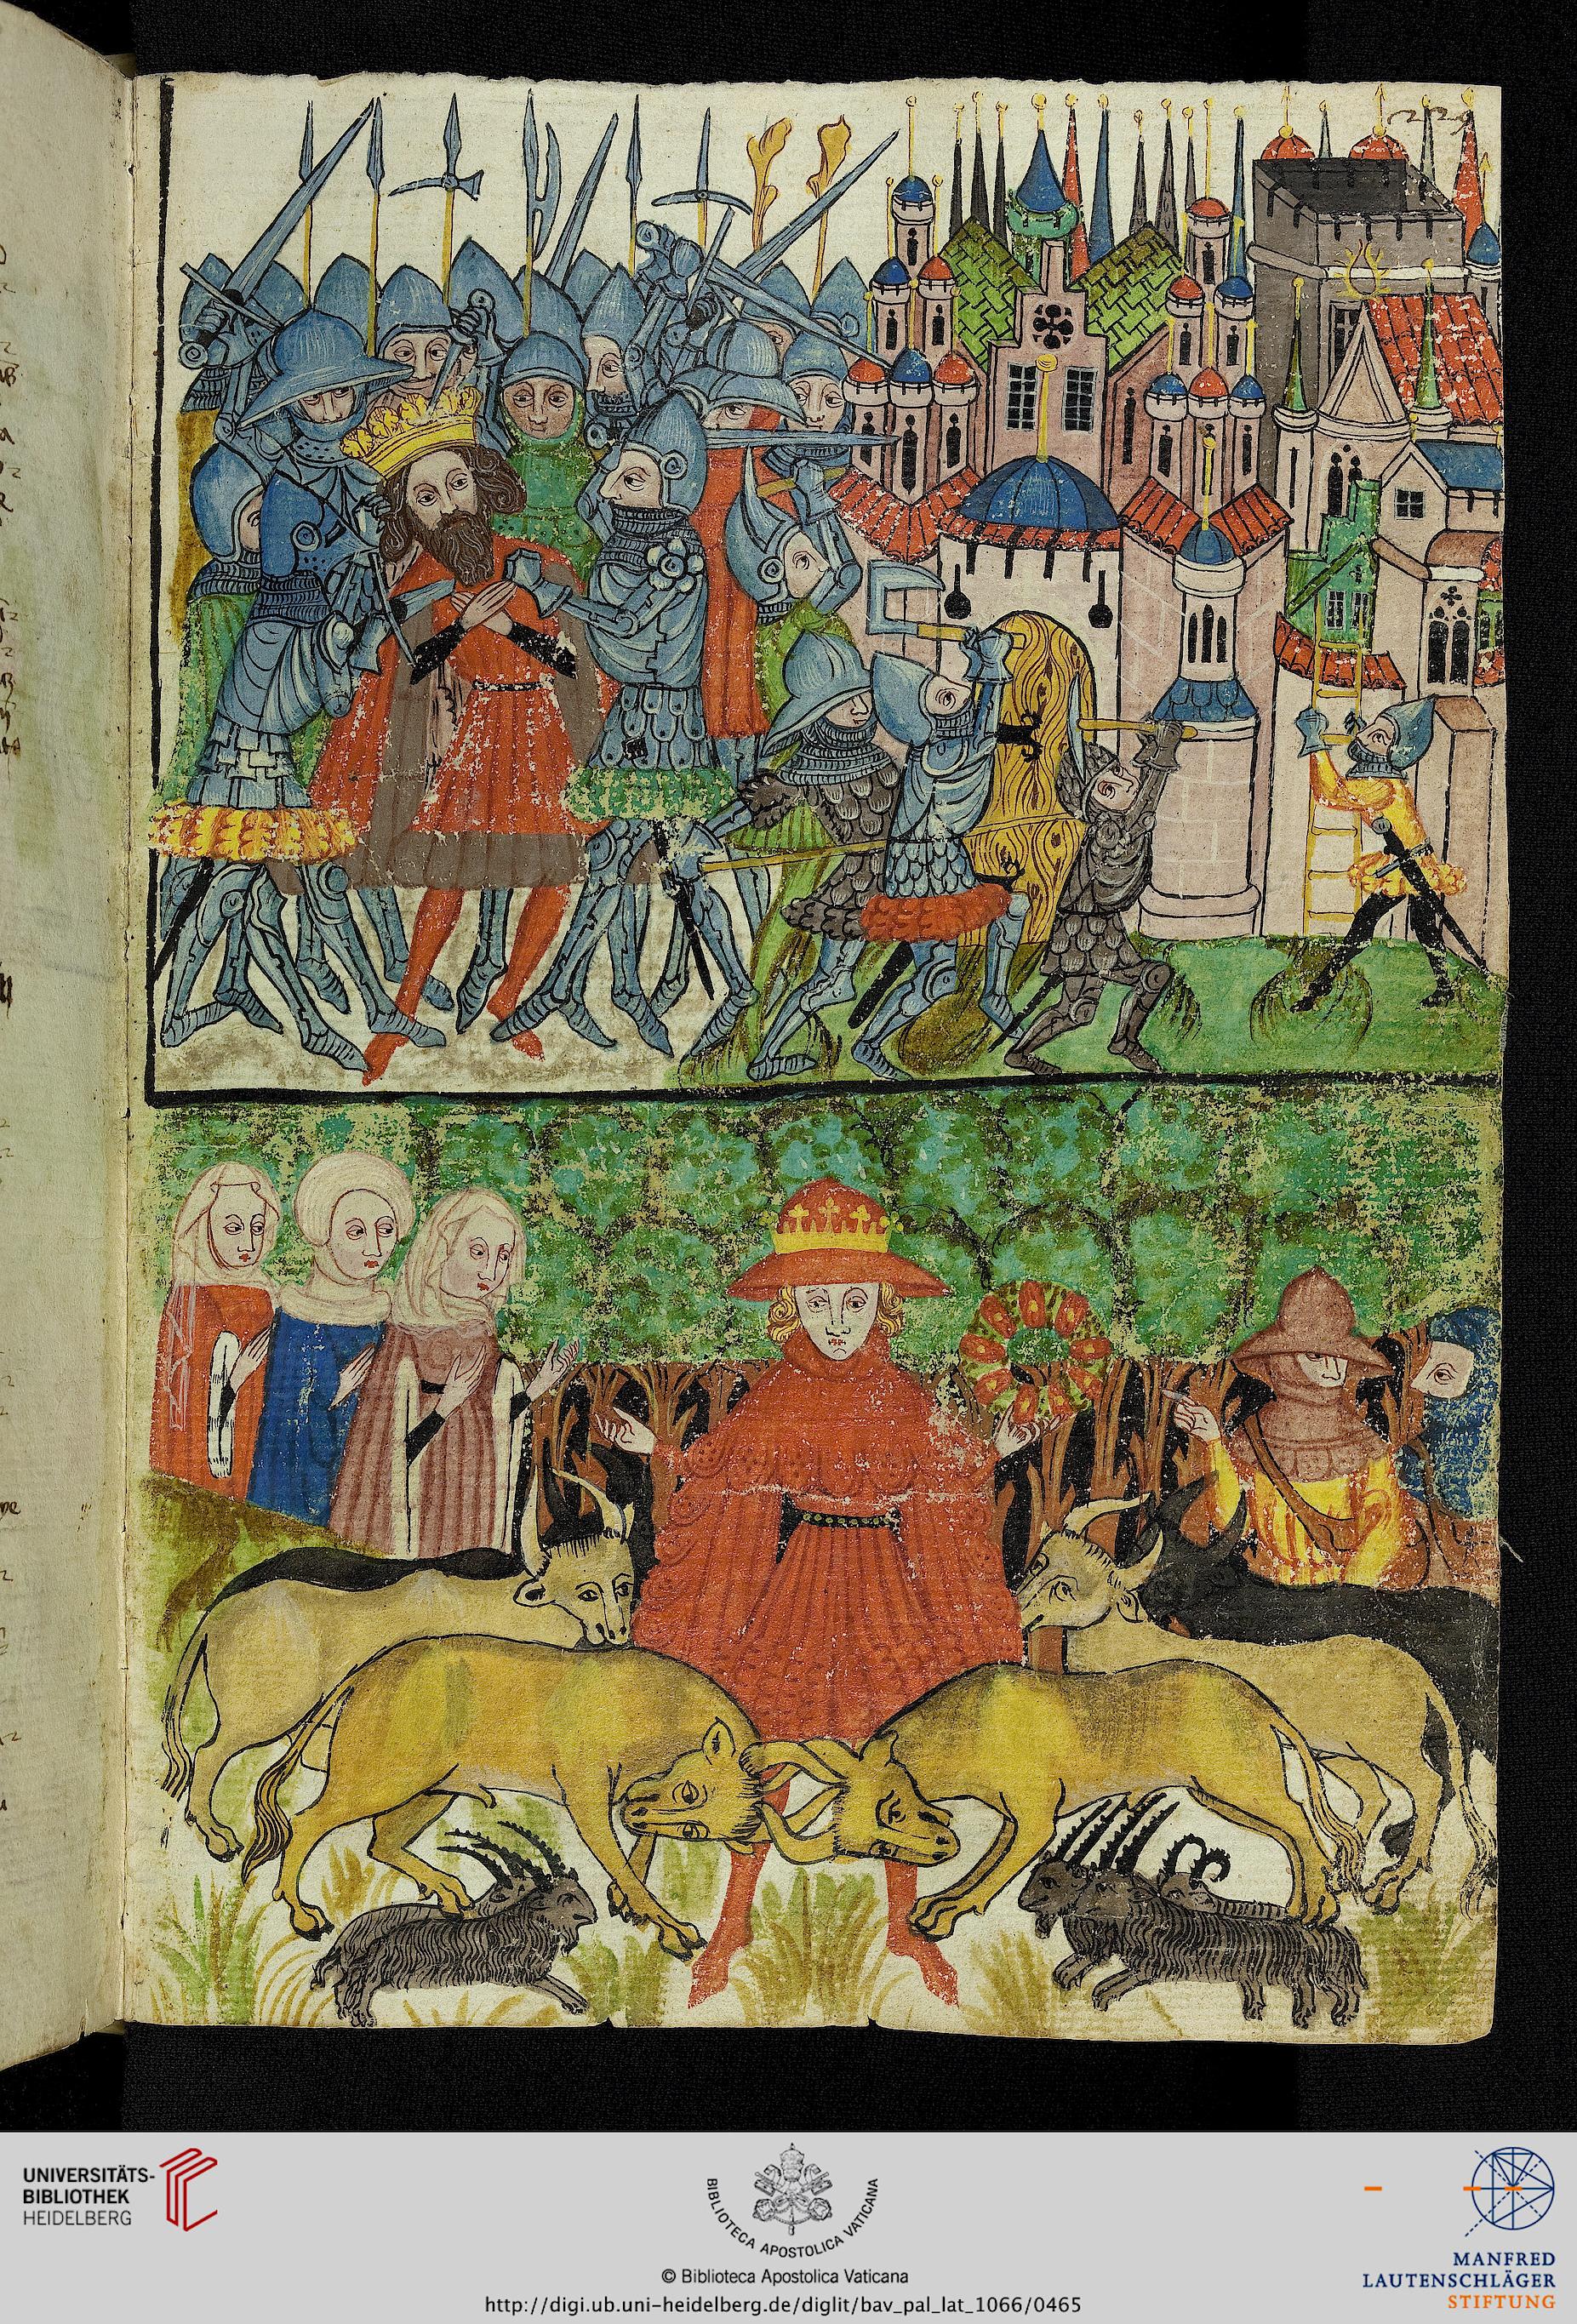 229
UNIVERSITÄTS-
BIBLIOTHEK
HEIDELBERG
BIBLIOTECA APOSTOLICA VATICANA
© Biblioteca Apostolica Vaticana
http://digi.ub.uni-heidelberg.de/diglit/bav_pal_lat_1066/0465
MANFRED
LAUTENSCHLÄGER
STIFTUNG